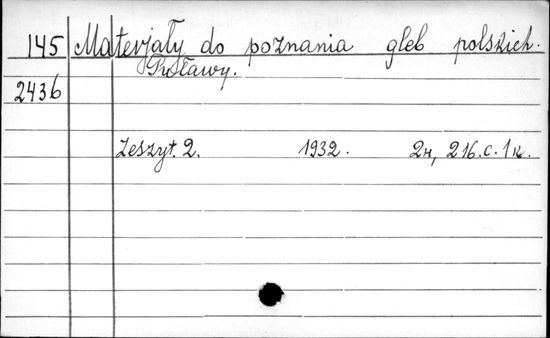 145 Materjały do poznania gleb polskich.
Puławy.
2436
Zeszyt. 2. 1932. 2н, 216.с.1к.